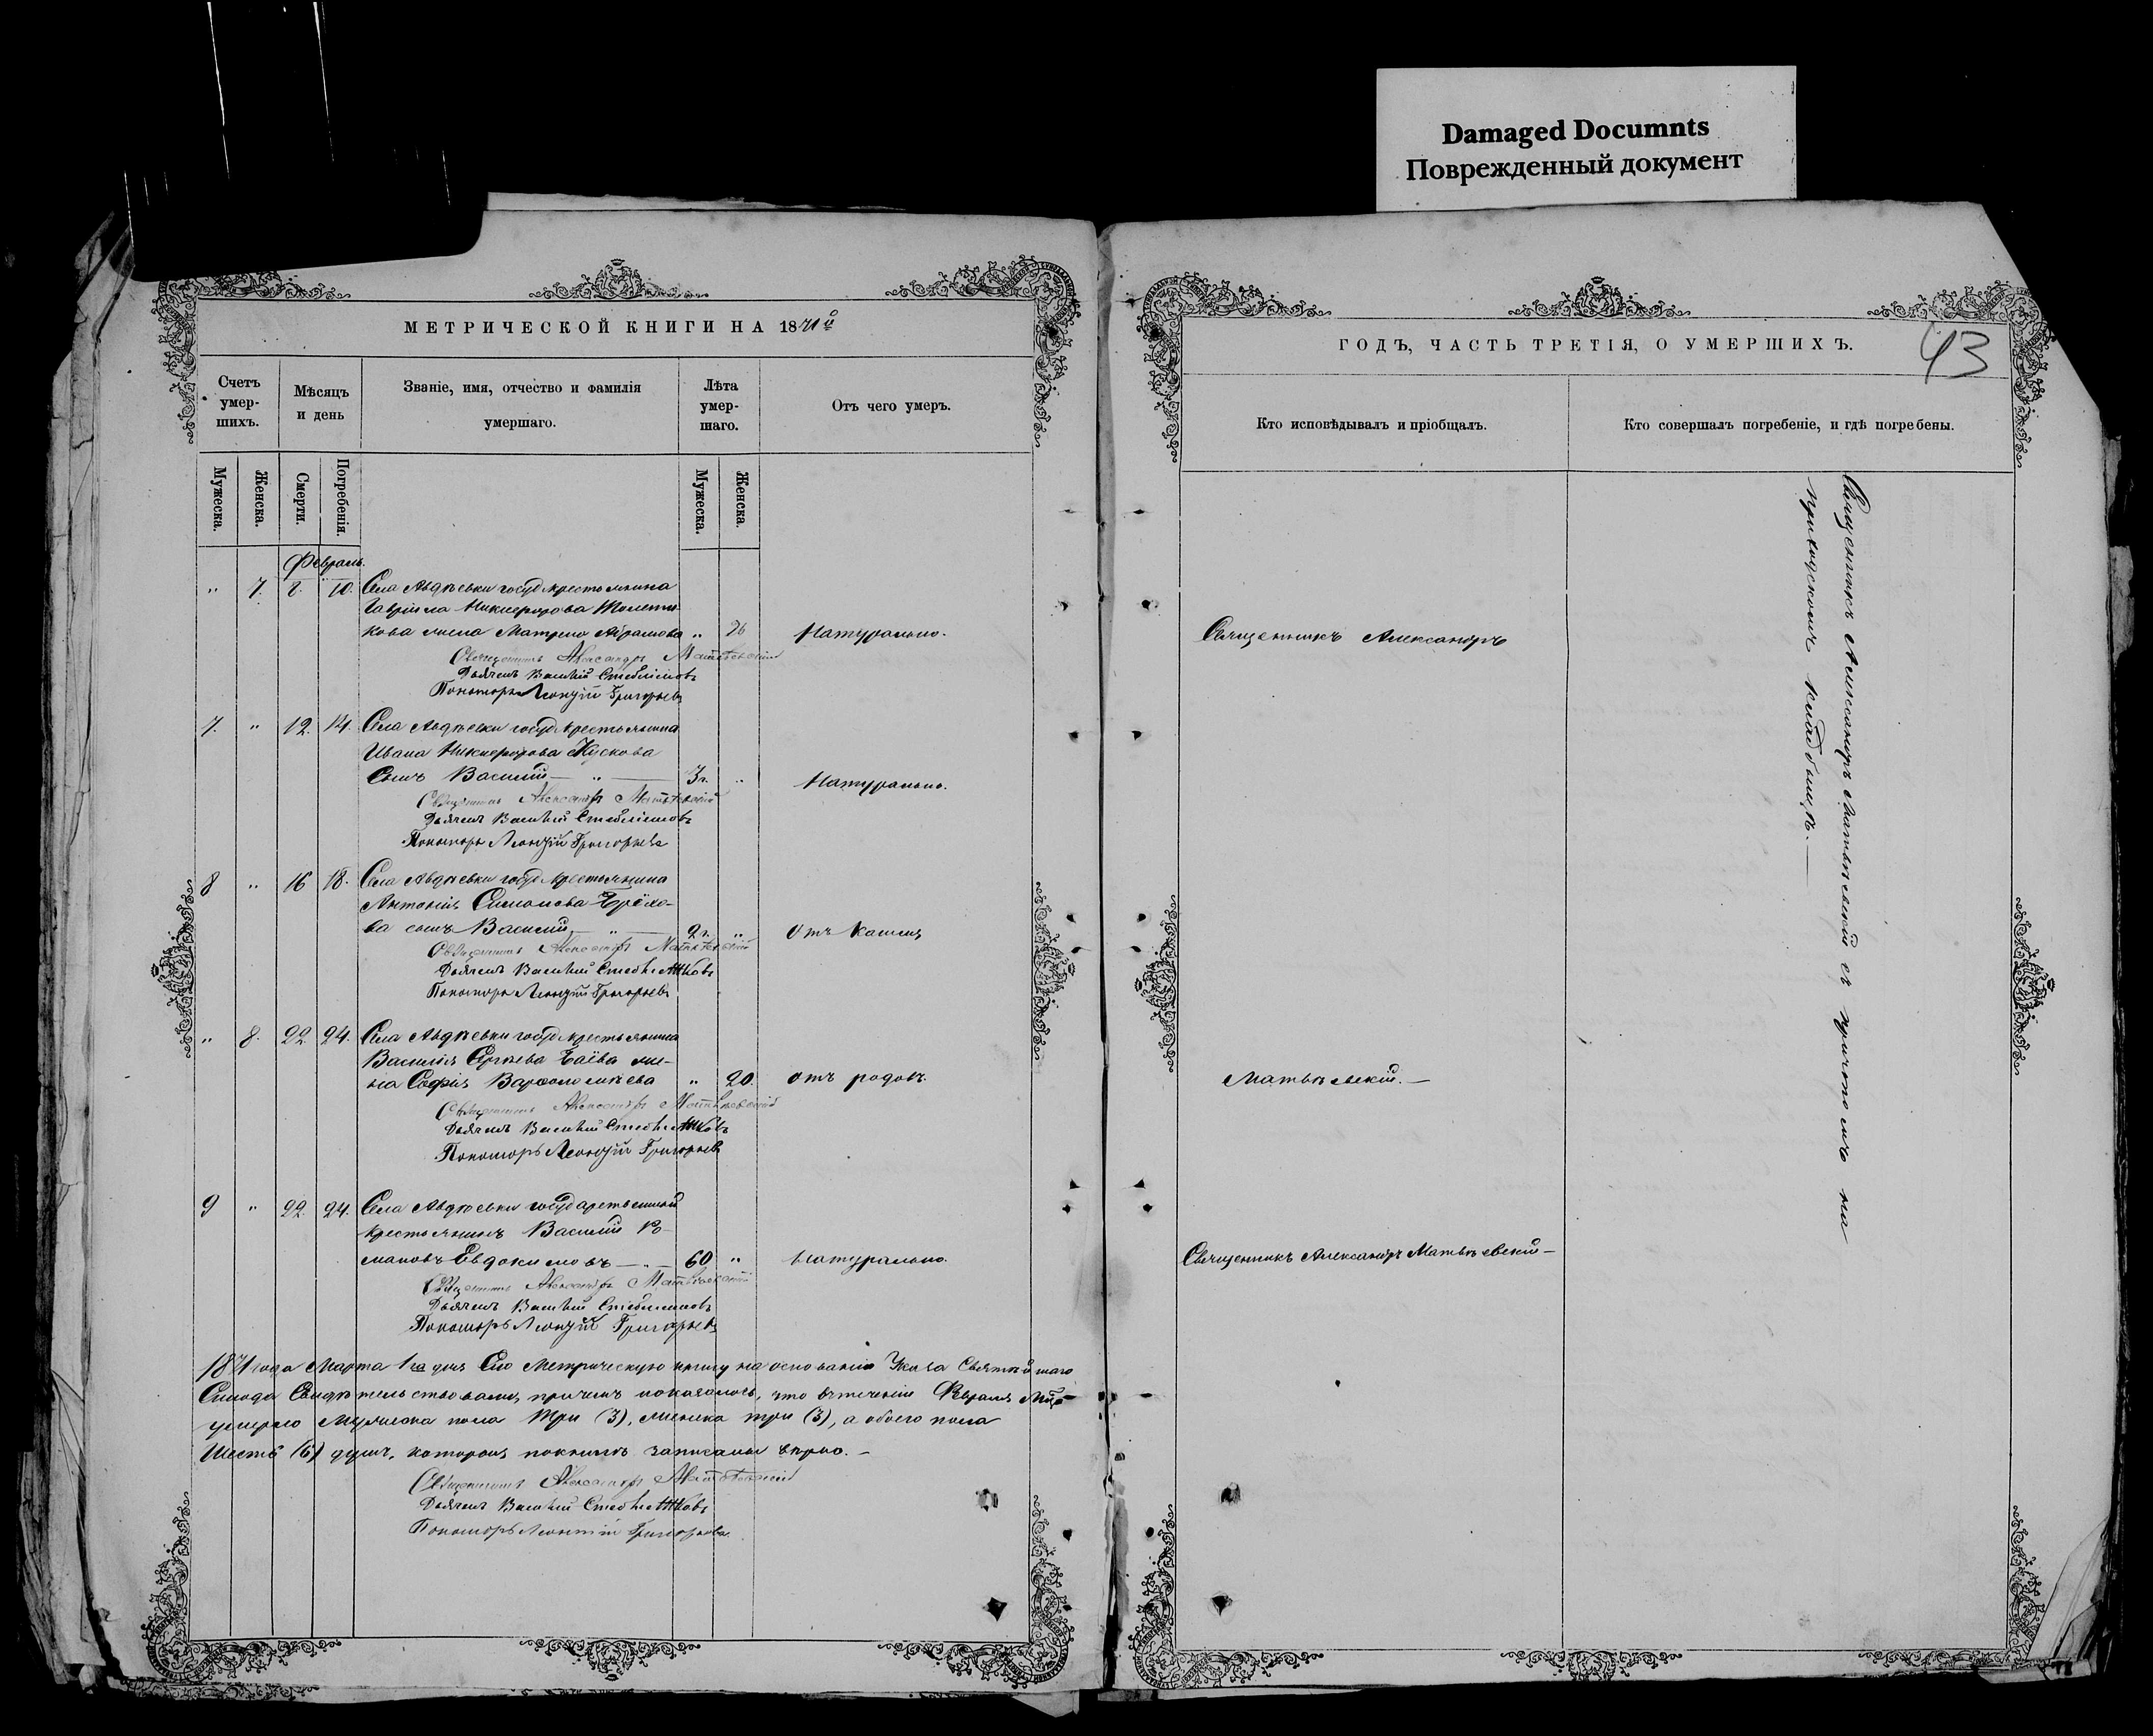 Damaged Documnts
Поврежденный документ
МЕТРИЧЕСКОЙ КНИГИ НА 1871й
Счетъ умер-шихъ.
Мѣсяцъ и день
Званіе, имя, отчество и фамилія умершаго.
Лѣта умер-шаго.
Отъ чего умеръ.
Мужеска.
Женска.
Смерти.
Погребенія.
Мужеска.
Женска.
Февраль.
" 7. 8. 10. Села Авдѣевки госуд крестьянина
Гавріила Никифорова
кова жена Матрена Абрамова " 76 Натурально.
Священникъ Александръ Матвѣевскій
Дьячекъ Василій
Пономарь Леонтій Григорьевъ
7. " 12. 14. Села Авдѣевки госуд крестьянина
Ивана Никифорова Жускова
сынъ Василій — " — 3г. " Натурально.
Священникъ Александръ Матвѣевскій
Дьячекъ Василій
Пономарь Леонтій Григорьевъ
8 " 16 18. Села Авдѣевки госуд крестьянина
Антонія Симонова
ва сынъ Василій — " — 2г. " Отъ кашля
Священникъ Александръ Матвѣевскій
Дьячекъ Василій
Пономарь Леонтій Григорьевъ
" 8. 22. 24. Села Авдѣевки госуд крестьянина
Василія Сергѣева Баёва же-
на Софія Варѳоломѣева " 20. Отъ родовъ.
Священникъ Александръ Матвѣевскій
Дьячекъ Василій
Пономарь Леонтій Григорьевъ
9 " 22. 24. Села Авдѣевки государственный
крестьянинъ Василій Ро-
мановъ Евдокимовъ — " — 60 " Натурально.
Священникъ Александръ Матвѣевскій
Дьячекъ Василій
Пономарь Леонтій Григорьевъ
1871 года Марта 1го дня Сію Метрическую книгу на основаніи Указа Святѣйшаго
Синода Свидѣтельствовали, причемъ показалось, что втеченіи Февраля Мца
умерло Мужеска пола три (3), женска три (3), а обоего пола
Шесть (6) душъ, которыя
записаны вѣрно. —
Священникъ Александръ Матвѣевскій
Дьячекъ Василій
Пономарь Леонтій Григорьевъ
ГОДЪ, ЧАСТЬ ТРЕТІЯ, О УМЕРШИХЪ.
43
Кто исповѣдывалъ и пріобщалъ.
Кто совершалъ погребеніе, и гдѣ погребены.
Священникъ Александръ
Матвѣевскій. —
Священникъ Александръ Матвѣевскій —
Священникъ Александръ Матвѣевскій съ причтомъ на
приходскомъ кладбищѣ. —